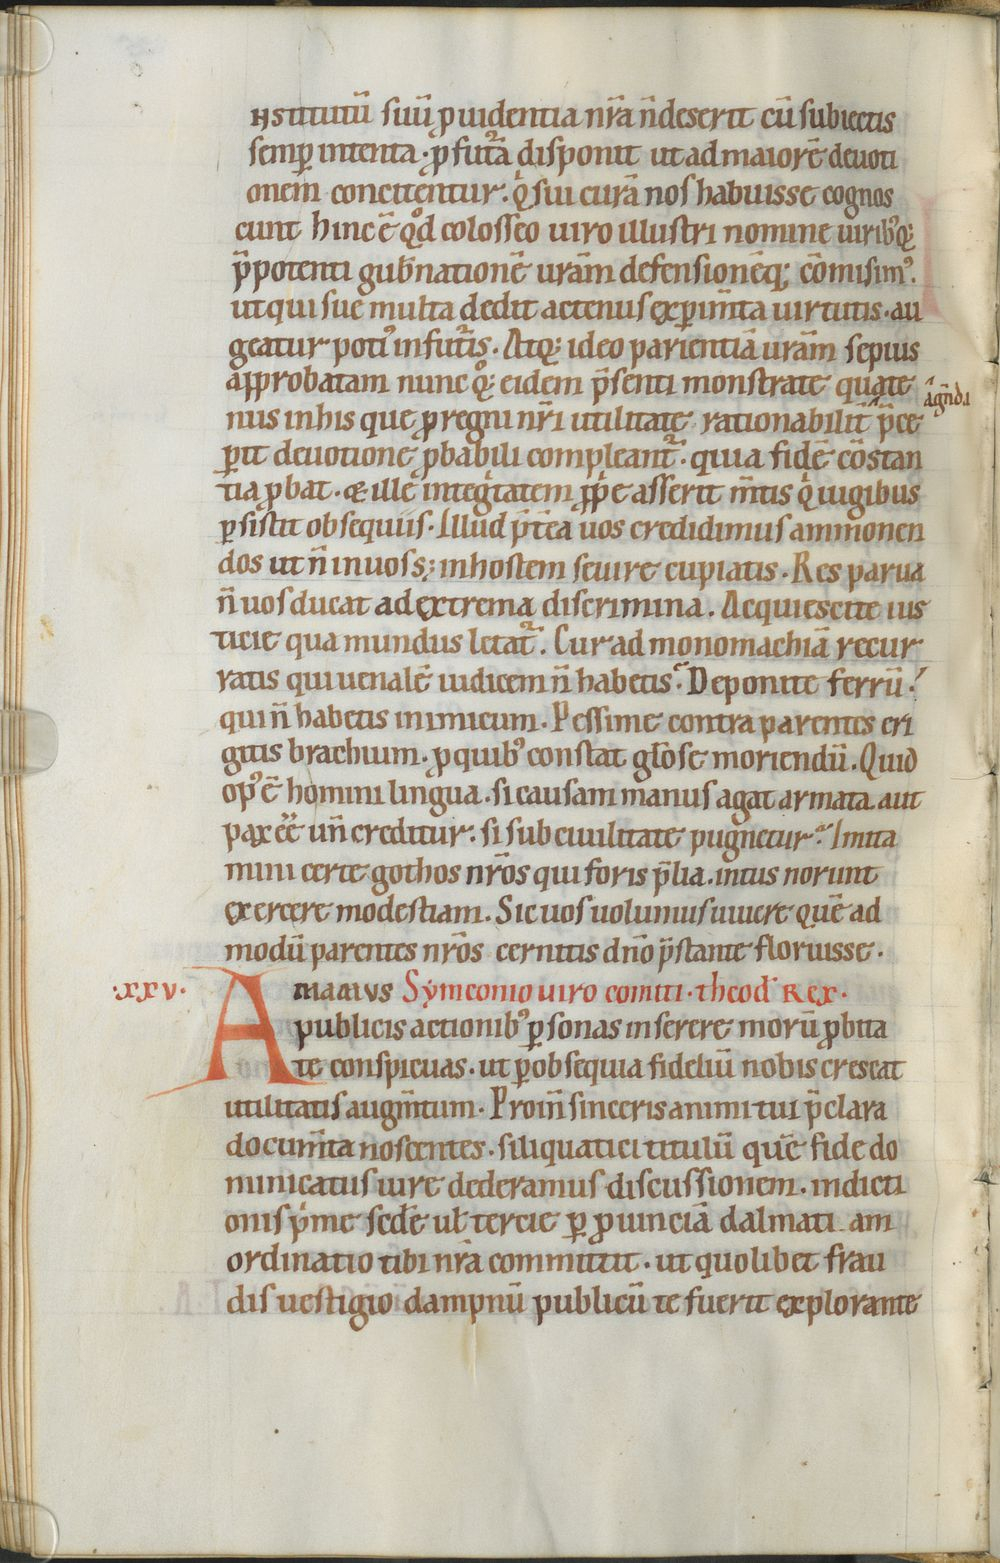 nstitutū suū ꝓuidentia nr̄a n̄ deserit cū subiectis
semp̱ intenta · ꝓ futura disponit ut ad maiorē deuoti
onem concitentur · q̇ sui curā nos habuisse cognos
cunt hinc ē qd̊ colosseo uiro illustri nomine uirib᾽q;
p̄potenti gub̄nationē urām defensionēq; cōmisim᾽.
ut qui sue multa dedit actenus exꝑim̄ta uirtutis · au
geatur poti᾽ in futuris · Atq; ideo parientiā urām sepius
approbatam nunc q̊q; eidem p̄senti monstrate quate
nus in his que ꝓ regni nr̄i utilitate rationabilit̄ p̄ce
āgn̄da
ꝑit deuotione ꝓbabili compleantur · quia fidē cōstan
tia ꝓbat · & ille inteġtatem ꝓṗe asserit m̄tis q̇ iugibus
ꝑsistit obsequiis · Illud p̄t̄ea uos credidimus ammonen
dos ut n̄ in uos s; in hostem seuire cupiatis · Res parua
n̄ uos ducat ad extrema discrimina . Acquiescite ius
ticie qua mundus letatur . Cur ad monomachiā recur
ratis qui uenalē iudicem n̄ habetis · Deponite ferrū ·
qui n̄ habetis inimicum · Pessime contra parentes eri
gitis brachium · ꝓ quib᾽ constat glo̅se moriendū . Quid
op᾽ ē homini lingua · si causam manus agat armata aut
pax eē un̄ creditur · si sub ciuilitate pugnetur · Imita
mini certe gothos nr̄os qui foris p̄lia . intus norunt
exercere modestiam . Sic uos uolumus uiuere quē ad
modū parentes nr̄os cernitis dn̄o p̄stante floruisse ·
·xxv· Amamus Symeonio uiro comiti · theod̄ Rex ·
publicis actionib᾽ ꝑsonas inserere morū ꝓbita
te conspicuas · ut ꝑ obsequia fideliū nobis crescat
utilitatis augm̄tum · Proin̄ sinceris animi tui p̄clara
docum̄ta noscentes · siliquatici titulū quē fide do
minicatus iure dederamus discussionem · indicti
onis p̍me secde ul̄ tercie ꝑ ꝓuinciā dalmati am
ordinatio tibi nr̄a committit · ut quolibet frau
dis uestigio dampnū publicū te fuerit explorante